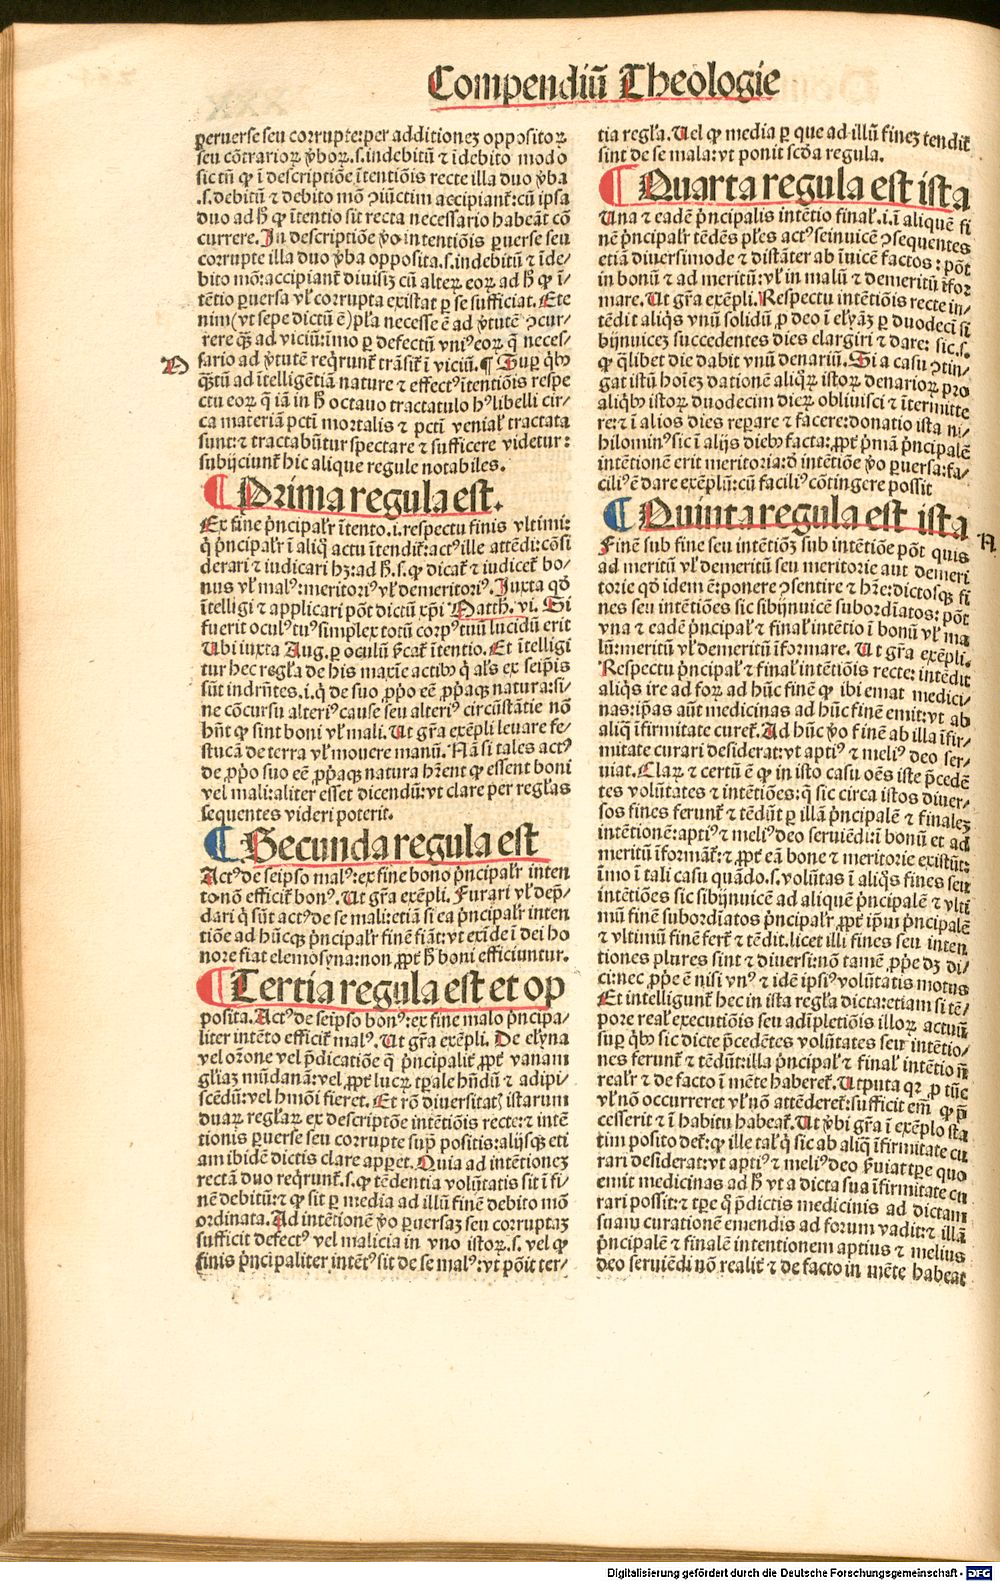 Compendiū Theologie
peruerse seu corrupte: per additionez oppositoꝝ
seu cōtrarioꝝ v̄boꝝ .s. indebitū ⁊ īdebito modo
sic tū ꝙ ī descriptiōe ītentiōis recte illa duo v̄ba
.s. debitū ⁊ debito mō ꝯiūctim accipiant̄: cū ipsa
duo ad h̄ ꝙ ītentio sit recta necessario habeāt cō
currere. In descriptiōe v̄o intentiōis peruerse seu
corrupte illa duo v̄ba opposita .s. indebitū ⁊ īde⸗
bito mō: accipiant̄ diuisiꝫ cū alteꝝ eoꝝ ad h̄ ꝙ ī⸗
tētio ꝑuersa vl̓ corrupta existat ꝑ se sufficiat. Ete
nim (vt sepe dictū ē) pl̓a necesse ē ad v̓tutē ꝯcur⸗
rere q̄ꝫ ad viciū: imo ꝑ defectū vniꝰ eoꝝ q̄ neces⸗
sario ad v̓tutē reqrunt̄ trāsit̄ ī viciū. ¶ Suꝑ qb̓ꝰ
D
q̄ꝫtū ad ītelligētiā nature ⁊ effectꝰ ītentiōis respe
ctu eoꝝ q̄ iā in h̄ octauo tractatulo hꝰ libelli cir⸗
ca materiā pcti mortalis ⁊ pcti venial̓ tractata
sunt: ⁊ tractabūtur spectare ⁊ sufficere videtur:
subijciunt̄ hic alique regule notabiles.
¶ Prima regula est.
Ex fine p̓ncipal̓r ītento .i. respectu finis vltimi:
q̓ p̓ncipal̓r ī aliq̄ actu ītendit̄: actꝰ ille attēdi: cōsi
derari ⁊ iudicari hꝫ: ad h̄ .s. ꝙ dicat̄ ⁊ iudicet̄ bo⸗
nus vl̓ malꝰ: meritoriꝰ vl̓ demeritoriꝰ. Juxta qd̄
ītelligi ⁊ applicari pōt dictū xp̄i Matth. vi. Si
fuerit oculꝰ tuꝰ simplex totū corpꝰ tuū lucidū erit
Ubi iuxta Aug. ꝑ oculū s̓cat̄ ītentio. Et ītelligi
tur hec regl̓a de his maxīe actibꝰ q̓ al̓s ex seip̄is
sūt indr̄ntes .i. q̓ de suo ꝓp̓o eē ꝓp̓aqꝫ natura: si⸗
ne cōcursu alteriꝰ cause seu alteriꝰ circūstātie nō
hn̄t ꝙ sint boni vl̓ mali. Ut gr̄a exēpli leuare fe⸗
stucā de terra vl̓ mouere manū. Nā si tales actꝰ
de ꝓp̓o suo eē ꝓp̓aqꝫ natura hr̄ent ꝙ essent boni
vel mali: aliter esset dicendū: vt clare per regl̓as
sequentes videri poterit.
¶ Secunda regula est
Actꝰ de seipso malꝰ: ex fine bono p̓ncipal̓r inten
to nō efficit̄ bonꝰ. Ut gr̄a exēpli. Furari vl̓ dep̄⸗
dari q̓ sūt actꝰ de se mali: etiā si ea p̓ncipal̓r inten
tiōe ad hūcqꝫ p̓ncipal̓r finē fiāt: vt exīde ī dei ho
nore fiat elemosyna: non ꝓpt̓ h̄ boni efficiuntur.
¶ Tertia regula est et op
posita. Actꝰ de seipso bonꝰ: ex fine malo p̓ncipa⸗
liter intēto efficit̄ malꝰ. Ut gr̄a exēpli. De elyna
vel or̄one vel p̄dicatiōe q̄ p̓ncipalit̓ ꝓpt̓ vanam
gl̓iaꝫ mūdanā: vel ꝓpt̓ lucꝝ tꝑale hn̄dū ⁊ adipi⸗
scēdū: vel hmōi fieret. Et rō diuersitatꝭ istarum
duaꝝ regl̓aꝝ ex descriptōe intētiōis recte: ⁊ intē
tionis ꝑuerse seu corrupte sup̓ positis: alijsqꝫ eti
am ibidē dictis clare apparet. Quia ad intētionez
rectā duo reqrunt̄ .s. ꝙ tēdentia volūtatis sit ī fi⸗
nē debitū: ⁊ ꝙ sit ꝑ media ad illū finē debito mō
ordinata. Ad intētionē v̄o ꝑuersaꝫ seu corruptaꝫ
sufficit defectꝰ vel malicia in vno istoꝝ .s. vel ꝙ
finis p̓ncipaliter intētꝰ sit de se malꝰ: vt pōit ter⸗
tia regl̓a. Uel ꝙ media ꝑ que ad illū finez tendit̄
sint de se mala: vt ponit scd̄a regula.
¶ Quarta regula est ista
Una ⁊ eadē p̓ncipalis intētio final̓ .i. ī aliquē fi
nē p̓ncipal̓r tēdēs pl̓es actꝰ seinuicē ꝯsequentes
etiā diuersimode ⁊ distāter ab īuicē factos: pōt
in bonū ⁊ ad meritū: vl̓ in malū ⁊ demeritū īfor
mare. Ut gr̄a exēpli. Respectu intētiōis recte in⸗
tēdit aliqs vnū solidū ꝓ deo ī elyāꝫ ꝑ duodecī si
bijnuicez succedentes dies elargiri ⁊ dare: sic .s.
ꝙ q̄libet die dabit vnū denariū. Si a casu ꝯtin⸗
gat istū hoiez dationē aliqꝝ istoꝝ denarioꝝ pro
aliqb̓ꝰ istoꝝ duodecim dieꝝ obliuisci ⁊ ītermitte
re: ⁊ ī alios dies reparare ⁊ facere: donatio ista ni⸗
hilominꝰ sic ī alijs diebꝰ facta: ꝓpt̓ p̓mā p̓ncipalē
intētionē erit meritoria: d̓ intētiōe v̓o ꝑuersa: fa⸗
ciliꝰ ē dare exēplū: cū faciliꝰ cōtingere possit
¶ Quinta regula est ista
A
Finē sub fine seu intētiōꝫ sub intētiōe pōt quis
ad meritū vl̓ demeritū seu meritorie aut demeri
torie qd̓ idem ē: ponere ꝯsentire ⁊ hr̄e: dictosqꝫ fi
nes seu intētiōes sic sibijnuicē subordīatos: pōt
vna ⁊ eadē p̓ncipal̓ ⁊ final̓ intētio ī bonū vl̓ ma
lū: meritū vl̓ demeritū īformare. Ut gr̄a exēpli.
Respectu p̓ncipal̓ ⁊ final̓ intētiōis recte: intēdit
aliqs ire ad foꝝ ad hūc finē ꝙ ibi emat medici⸗
nas: ip̄as aūt medicinas ad hūc finē emit: vt ab
aliq̄ īfirmitate curet̄. Ad hūc v̓o finē ab illa īfir⸗
mitate curari desiderat: vt aptiꝰ ⁊ meliꝰ deo ser⸗
uiat. Claꝝ ⁊ certū ē ꝙ in isto casu oēs iste p̄cedē
tes volūtates ⁊ intētiōes: q̓ sic circa istos diuer⸗
sos fines ferunt̄ ⁊ tēdūt ꝑ illā p̓ncipalē ⁊ finalez
intētionē: aptiꝰ ⁊ meliꝰ deo seruiēdi: ī bonū et ad
meritū īformāt̄: ⁊ ꝓpt̓ eā bone ⁊ meritorie existūt:
īmo ī tali casu quādo .s. volūtas ī aliqs fines seu
intētiōes sic sibijnuicē ad aliquē p̓ncipalē ⁊ vlti
mū finē subordīatos p̓ncipal̓r ꝓpt̓ ip̄m p̓ncipalē
⁊ vltimū finē fert̄ ⁊ tēdit. licet illi fines seu inten
tiones plures sint ⁊ diuersi: nō tamē ꝓp̓e dꝫ di⸗
ci: nec ꝓp̓e ē nisi vnꝰ ⁊ idē ipsiꝰ volūtatis motus
Et intelligunt̄ hec in ista regl̓a dicta: etiam si tē⸗
pore real̓ executiōis seu adīpletiōis illoꝝ actuū
suꝑ qb̓ꝰ sic dicte p̄cedētes volūtates seu intētio⸗
nes ferunt̄ ⁊ tēdūt: illa p̓ncipal̓ ⁊ final̓ intētio n̄
real̓r ⁊ de facto ī mēte haberet̄. Utputa qꝛ ꝓ tūc
vl̓ nō occurreret vl̓ nō attēderet̄: sufficit em̄ ꝙ p̄
cesserit ⁊ ī habitu habeat̄. Ut v̓bi gr̄a ī exēplo sta
tim posito det̄: ꝙ ille tal̓ q̓ sic ab aliq̄ īfirmitate cu
rari desiderat: vt aptiꝰ ⁊ meliꝰ deo s̓uiat tꝑe quo
emit medicinas ad h̄ vt a dicta sua īfirmitate cu
rari possit: ⁊ tꝑe q̓ p̄dictis medicinis ad dictam
suam curationē emendis ad forum vadit: ⁊ illā
p̓ncipalē ⁊ finalē intentionem aptius ⁊ melius
deo seruiēdi nō realit̓ ⁊ de facto in mēte habeat
Digitalisierung gefördert durch die Deutsche Forschungsgemeinschaft - DFG